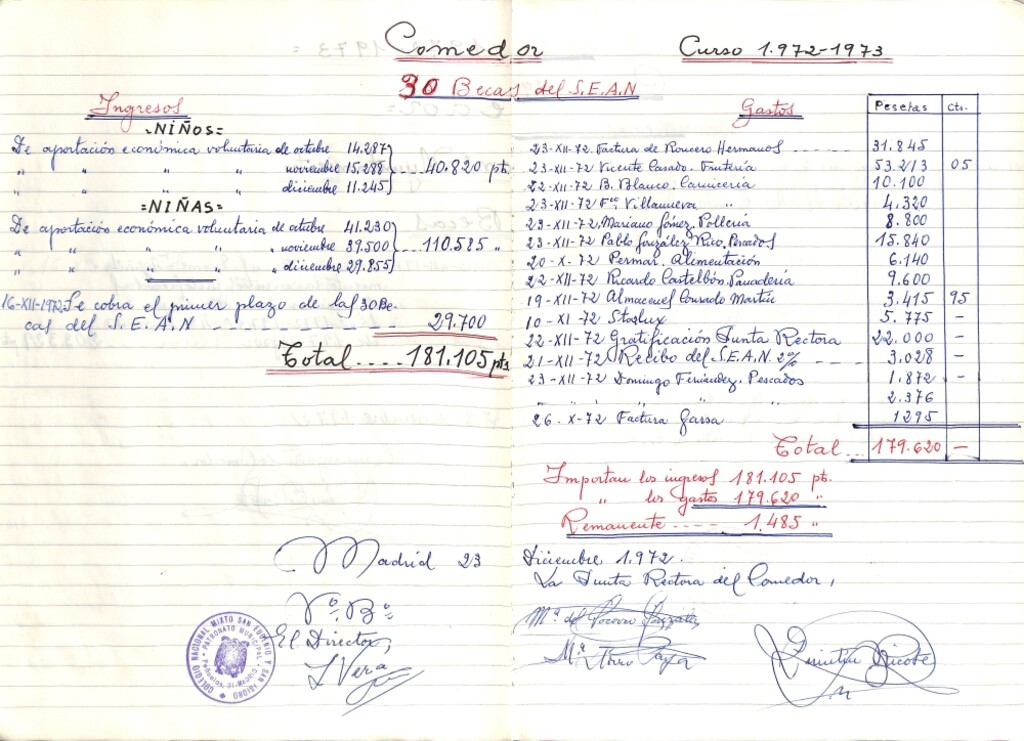 Comedor
30 Becas del S.E.A.N
Ingresos
=NIÑOS=
De aportación económica voluntaria de octubre 14.287
" " " " noviembre 15.288 40.820 pts.
" " " " diciembre 11.245
=NIÑAS=
De aportación económica voluntaria de octubre 41.230
" " " " noviembre 39.500 ... 110.585 "
" " " " diciembre 29.855
16-XII-1972, Se cobra el primer plazo de las 30 Be-
cas del S.E.A.N 29.700
Total .... 181.105 pts
Madrid 23
Vº. Bº
El Director,
J. Vera
COLEGIO NACIONAL MIXTO SAN EUGENIO Y SAN ISIDRO
PATRONATO MUNICIPAL
Peñuelas, 31-MADRID
Curso 1.972-1973
Gastos Pesetas Cts.
23-XII-72. Factura de Roncero Hermanos 31.845
23-XII-72 Vicente Casado. Frutería 53.213 05
22-XII-72 B. Blanco. Carnicería 10.100
23-XII-72 Fco Villanueva " 4.320
23-XII-72. Mariano Gómez. Pollería 8.800
23-XII-72 Pablo González Rico. Pescados 15.840
20-X-72 Permar. Alimentación 6.140
22-XII-72 Ricardo Castelbón. Panadería 9.600
19-XII-72 Almacenes Conrado Martín 3.415 95
10-XI-72 Starlux 5.775 -
22-XII-72 Gratificación Junta Rectora 22.000 -
21-XII-72 Recibo del S.E.A.N. 2% 3.028 -
23-XII-72 Domingo Fernández. Pescados 1.872 -
" " " " 2.376
26.X-72 Factura Garsa 1295
Total ... 179.620 -
Importan los ingresos 181.105 pts.
" los gastos 179.620 "
Remanente ---- 1.485 "
Diciembre 1.972.
La Junta Rectora del Comedor,
Mª del Socorro González
Mª